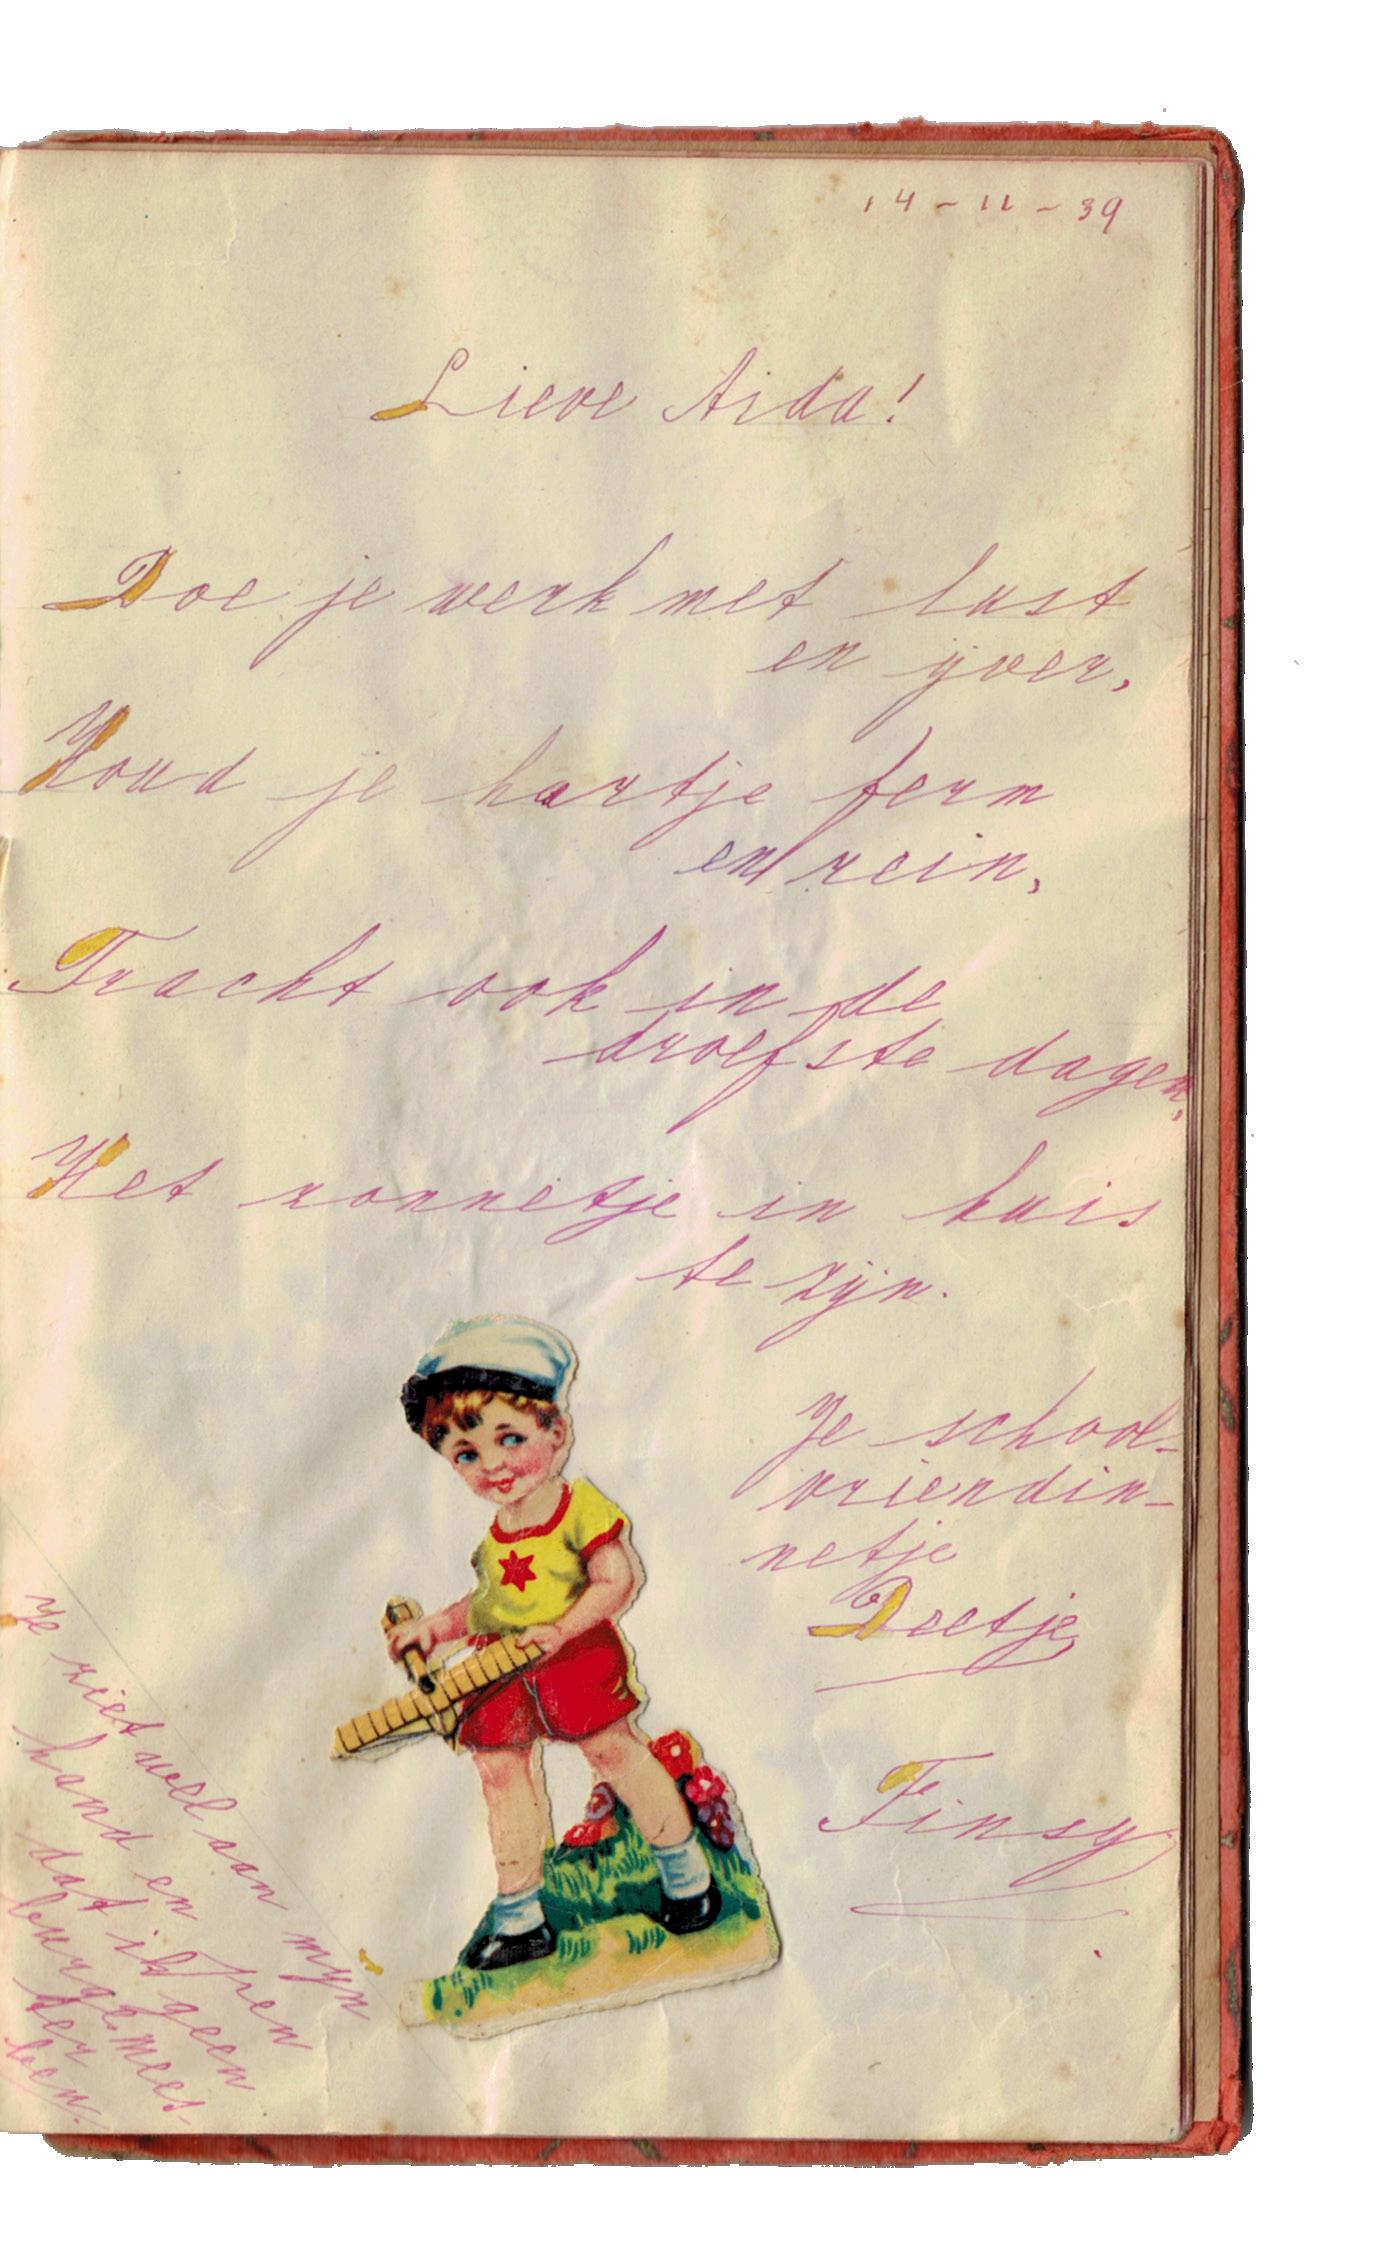 14-11-39
Lieve Aida!
Doe je werk met lust
en ijver,
Houd je hartje ferm
en rein,
Tracht ook in de
droefste dagen,
Het zonnetje in huis
te zijn.
Je school-
vriendin-
netje
Deetje
Finsy
Je ziet wel aan mijn
hand en pen
dat ik geen
burgemees-
ter
ben.